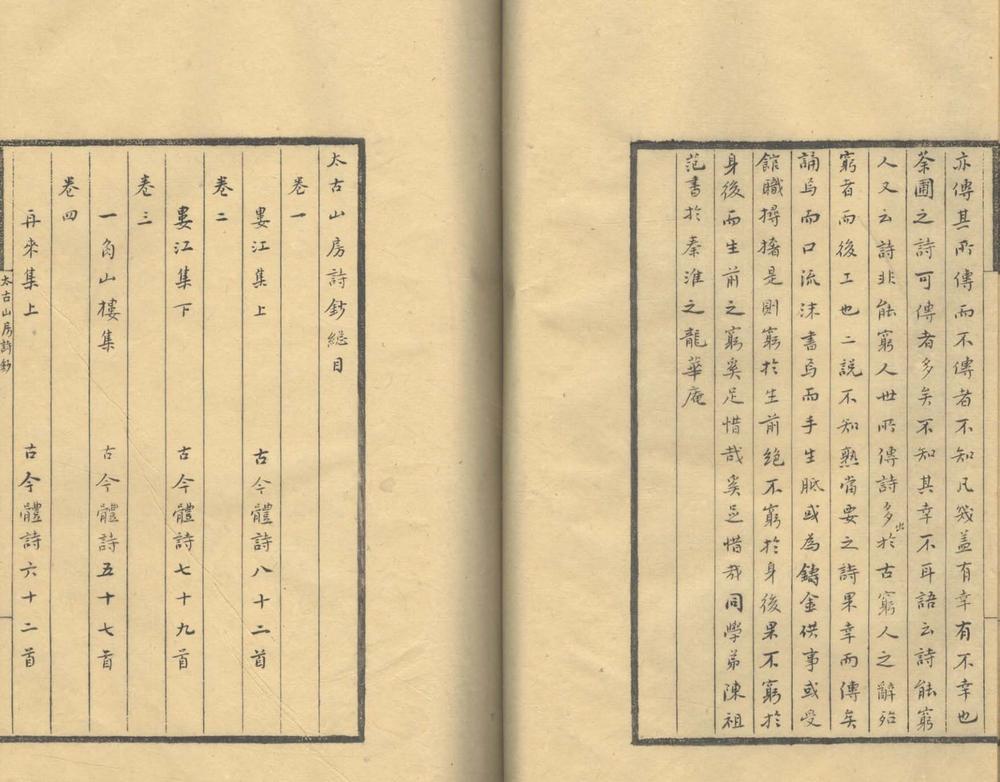 亦傳其所傳而不傳者不知凡幾蓋有幸有不幸也
荼圃之詩可傳者多矣不知其幸不耳語云詩能窮
人又云詩非能窮人世所傳詩多出於古窮人之辭殆
窮者而後工也二說不知熟當要之詩果幸而傳矣
誦焉而口流沫書焉而手生胝或為鑄金供事或受
館職撏撦是則窮於生前絶不窮於身後果不窮於
身後而生前之窮奚足惜哉奚足惜哉同學弟陳祖
范書於秦淮之龍華庵
太古山房詩鈔總目
卷一
婁江集上 古今體詩八十二首
卷二
婁江集下 古今體詩七十九首
卷三
一角山樓集 古今體詩五十七首
卷四
再來集上 古今體詩六十二首
太古山房詩鈔